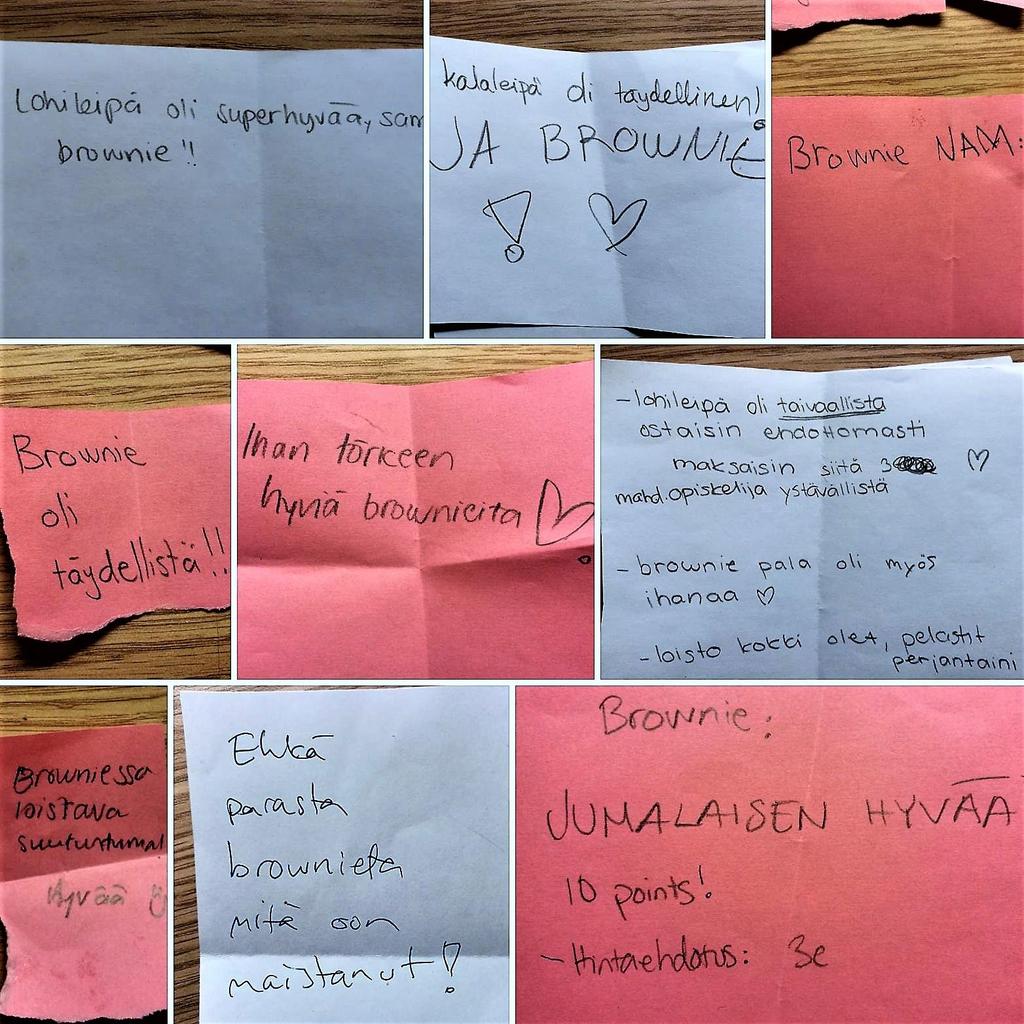 Lohileipä oli superhyvää, sam
brownie!!
kalaleipä oli täydellinen!
JA BROWNIE
! ♡
Brownie NAM:
Brownie
oli
täydellistä!!
Ihan törkeen
hyviä brownieita ♡
- lohileipä oli taivaallista
ostaisin ehdottomasti
maksaisin siitä 3 ♡
mahd. opiskelija ystävällistä
- brownie pala oli myös
ihanaa ♡
- loisto kokki olet, pelastit
perjantaini
Browniessa
loistava
suutuntuma!
Hyvää :)
Ehkä
parasta
brownieta
mitä oon
maistanut!
Brownie:
JUMALAISEN HYVÄÄ
10 points!
- Hintaehdotus: 3e